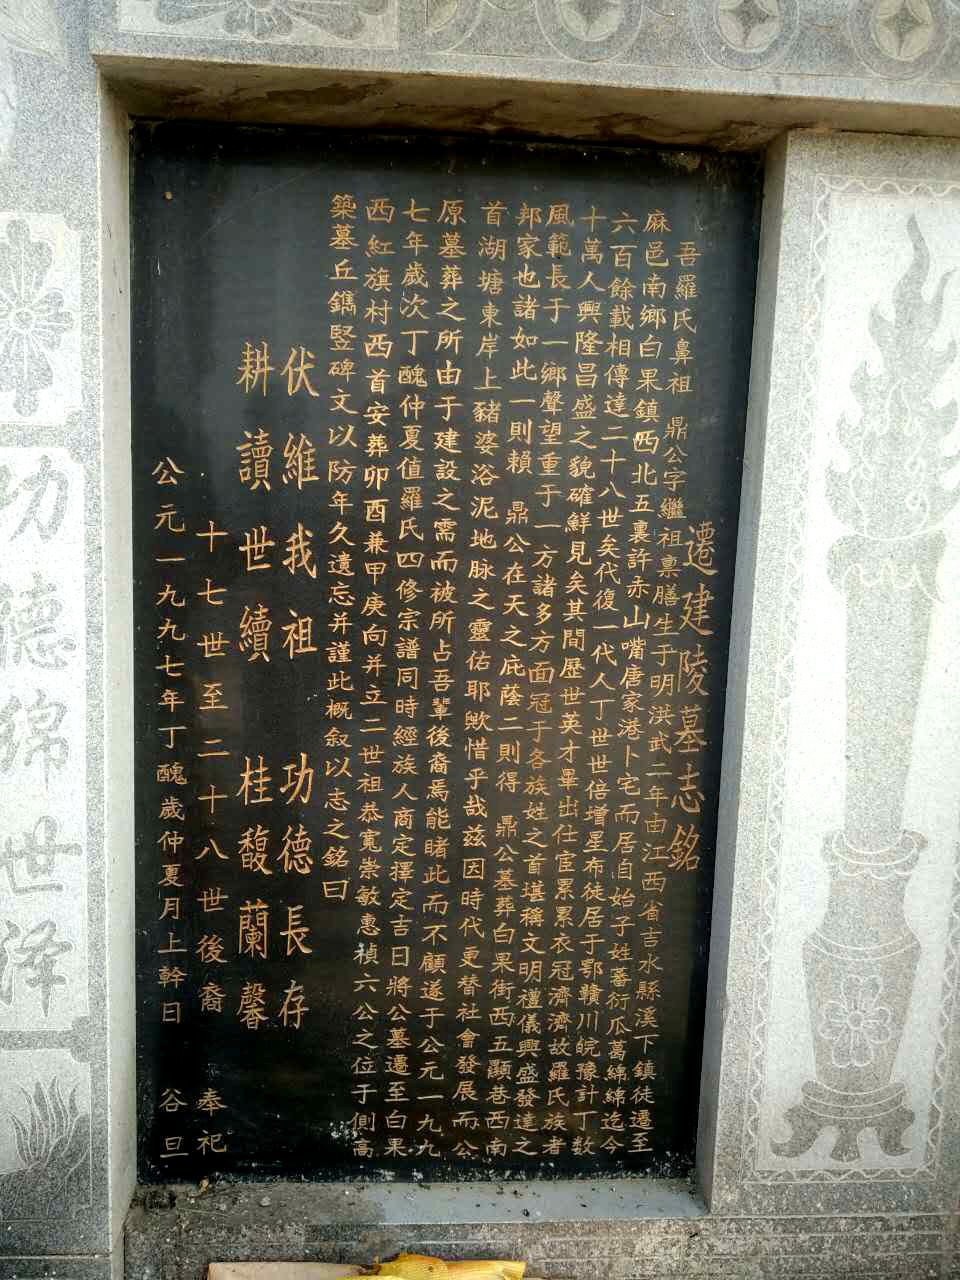 遷建陵墓志銘
吾羅氏鼻祖 鼎公字繼祖禀膳生于明洪武二年由江西省吉水縣溪下鎮徒遷至
麻邑南鄉白果鎮西北五裏許赤山嘴唐家港卜宅而居自始子姓蕃衍瓜葛綿綿迄今
六百餘載相傳達二十八世矣代復一代人丁世世倍增星布徒居于鄂贛川皖豫計丁数
十萬人興隆昌盛之貌確鮮見矣其間歷世英才畢出仕宦累累衣冠濟濟故羅氏族者
風範長于一鄉聲望重于一方諸多方面冠于各族姓之首堪稱文明禮儀興盛發達之
邦家也諸如此一則賴 鼎公在天之庇蔭二則得 鼎公墓葬白果街西五顯巷西南
首湖塘東岸上豬婆浴泥地脉之靈佑耶歟惜乎哉兹因時代更替社會發展而公
原墓葬之所由于建設之需而被所占吾輩後裔焉能睹此而不顧遂于公元一九九
七年歲次丁醜仲夏值羅氏四修宗譜同時經族人商定擇定吉日將公墓遷至白果
西紅旗村西首安葬卯酉兼甲庚向并立二世祖恭寬崇敏惠禎六公之位于側高
築墓丘鐫竪碑文以防年久遺忘并謹此概叙以志之銘曰
伏維我祖 功德長存
耕讀世續 桂馥蘭馨
十七世至二十八世後裔 奉祀
公元一九九七年丁醜歲仲夏月上幹日 谷旦
功德綿世泽